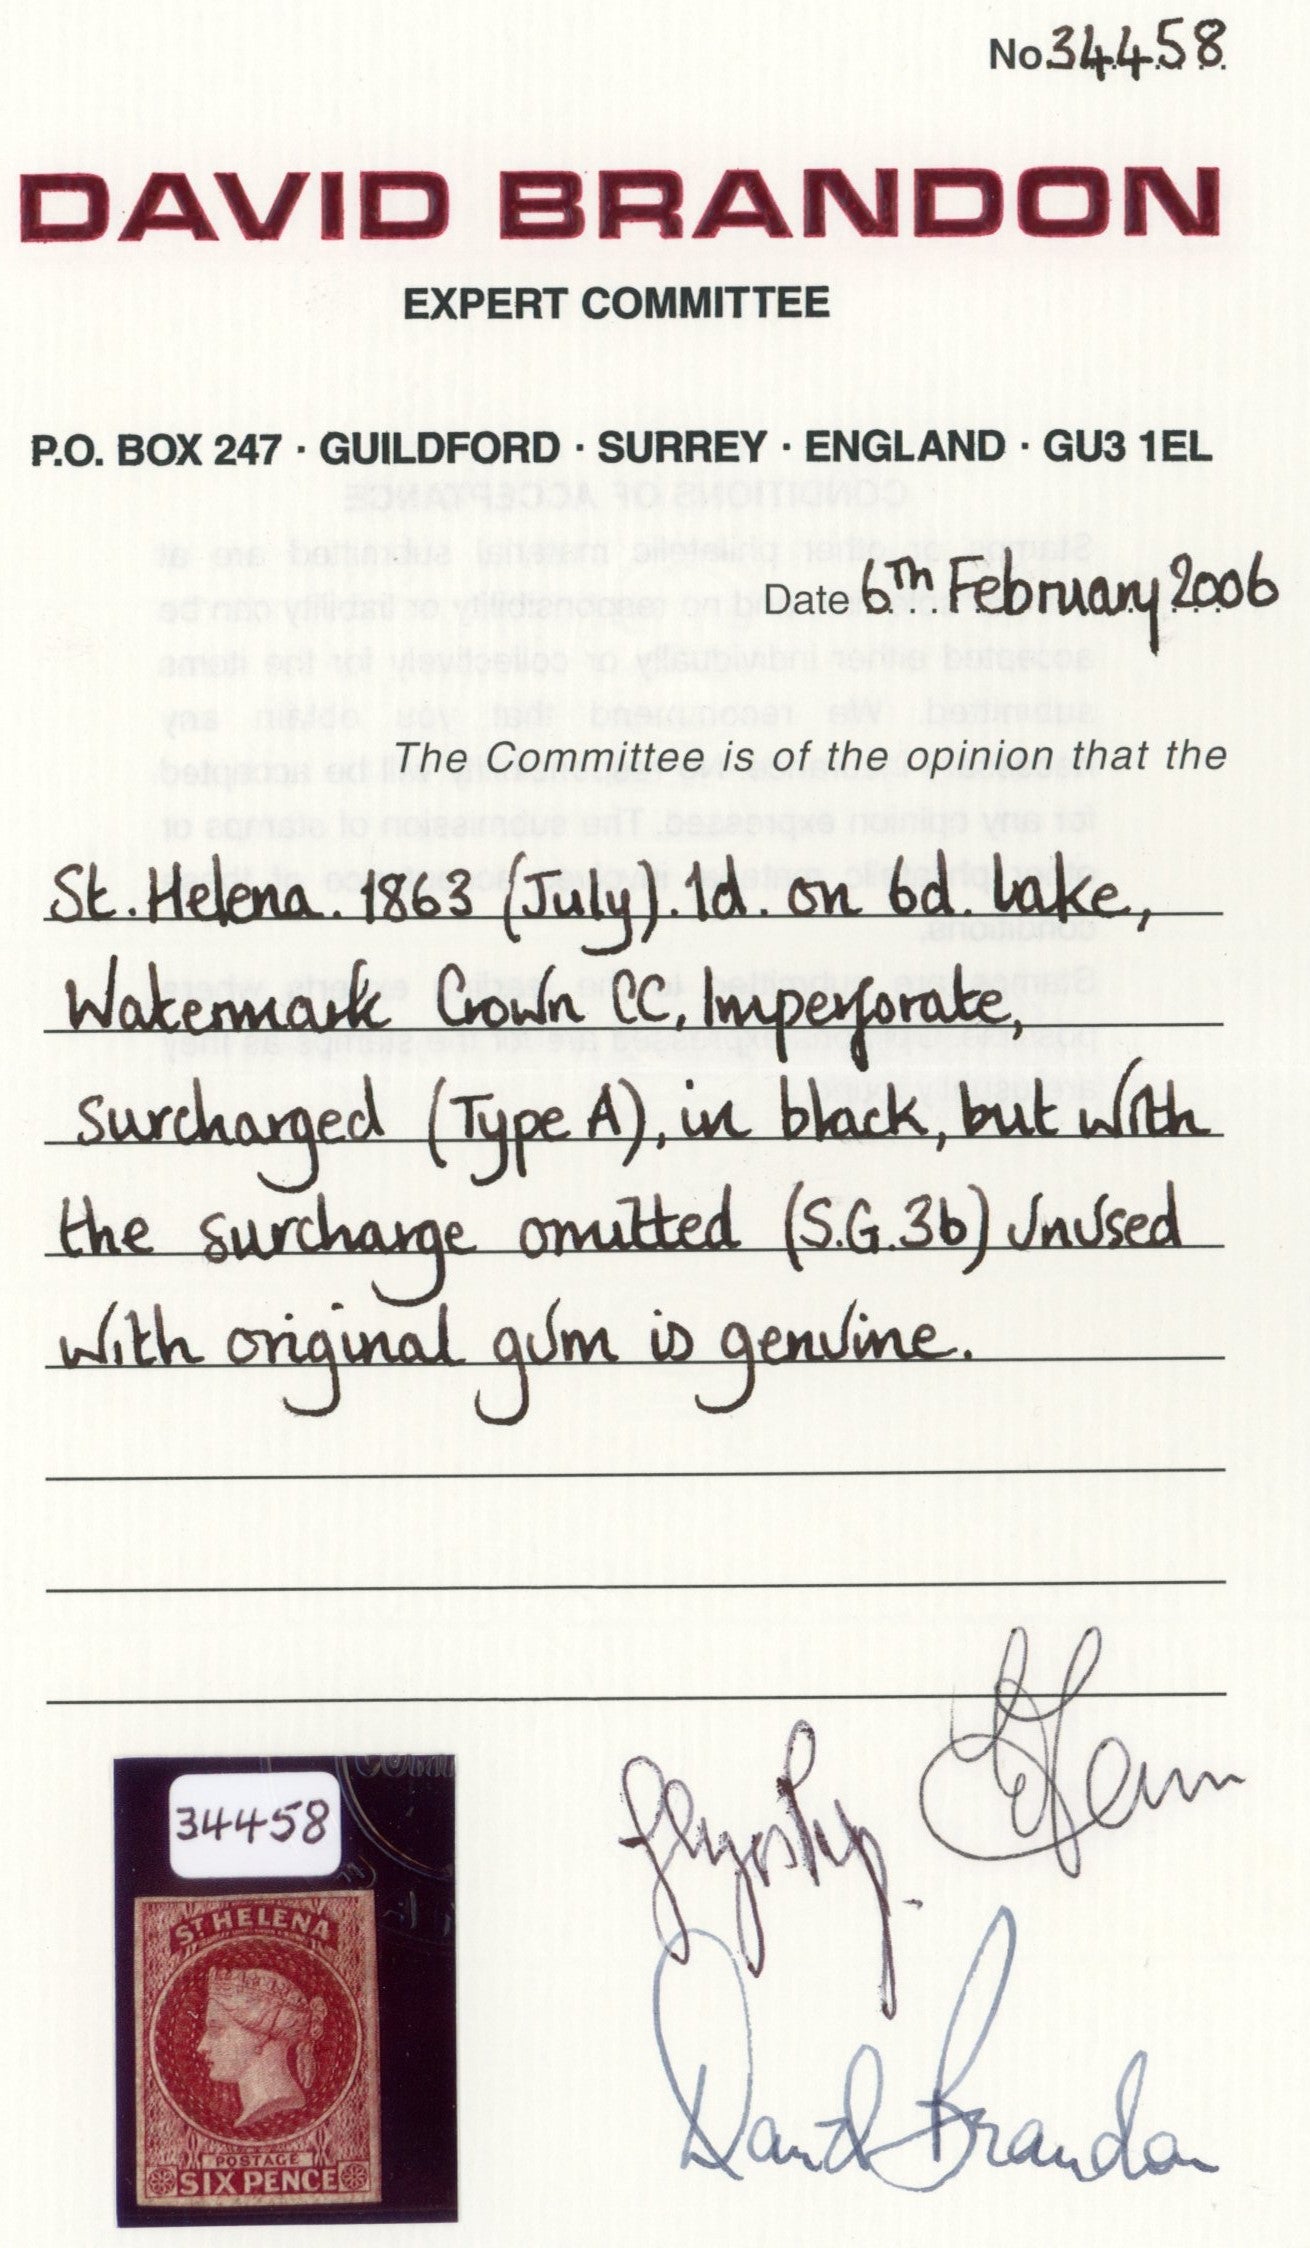 No. 34458
DAVID BRANDON
EXPERT COMMITTEE
P.O. BOX 247 · GUILDFORD · SURREY · ENGLAND · GU3 1EL
Date 6Th February 2006
The Committee is of the opinion that the
St. Helena. 1863 (July). 1d. on 6d. lake,
Watermark Crown CC, Imperforate,
surcharged (Type A), in black, but with
the surcharge omitted (S.G.3b) unused
with original gum is genuine.
34458
ST HELENA
POSTAGE
SIX PENCE
David Brandon